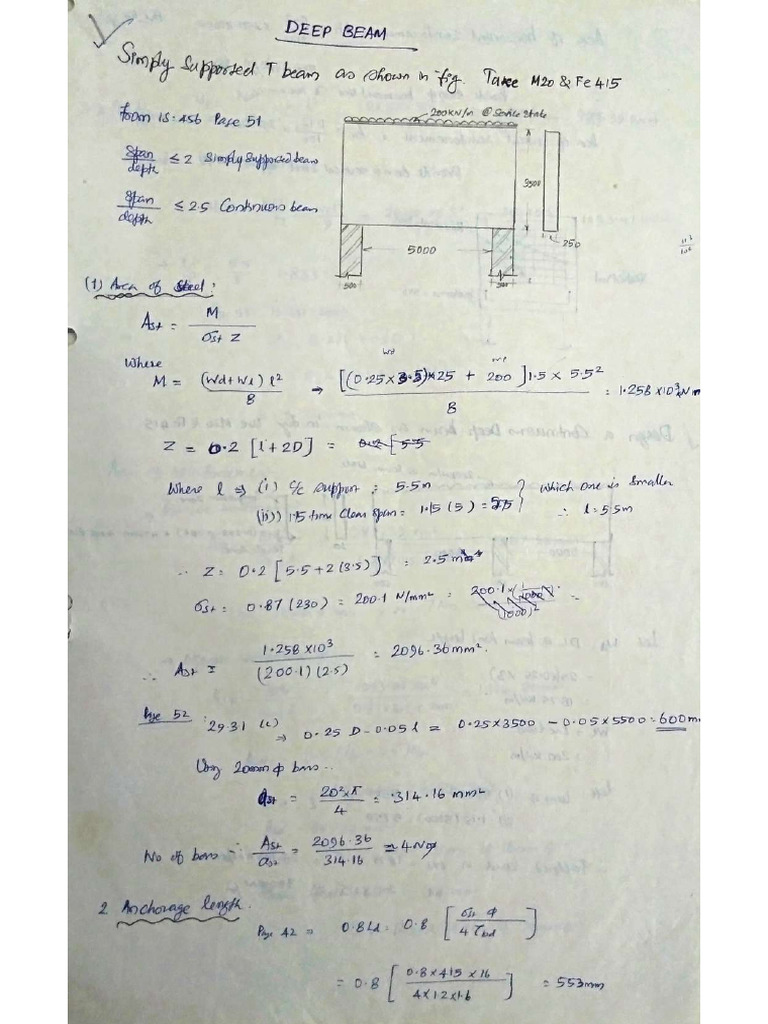 DEEP BEAM
Simply Supported T beam as shown in fig. Take M20 & Fe 415
From IS:456 Page 51
200KN/m @ Service State
Span/depth ≤ 2 Simply Supported beam
Span/depth ≤ 2.5 Continuous beam
3500
5000
250
500
(1) Area of Steel:
Ast = M / σst Z
Where
M = (Wd+Wl) l² / 8 → [(0.25×3.5)×25 + 200] 1.5 × 5.5² / 8 = 1.258 ×10³ kN m
Z = 0.2 [l+2D] =
Where l ⇒ (i) c/c support = 5.5m
(ii) 1.15 time clear span = 1.15 (5) = 5.75
which one is smaller
∴ l = 5.5m
∴ Z = 0.2 [5.5+2(3.5)] = 2.5 m
σst = 0.87 (230) = 200.1 N/mm² =
∴ Ast = 1.258 ×10³ / (200.1)(2.5) = 2096.36 mm².
Page 52 : 29.3.1 (c) → 0.25 D - 0.05 l = 0.25×3500 - 0.05×5500 = 600 m
Using 20mm ϕ bars..
ast = 20²×π / 4 = 314.16 mm²
No of bars = Ast / ast = 2096.36 / 314.16 ≃ 4No
2. Anchorage length.
Page 42 = 0.8Ld = 0.8 [σst ϕ / 4 τbd]
= 0.8 [0.8×415×16 / 4×1.2×1.6] = 553mm